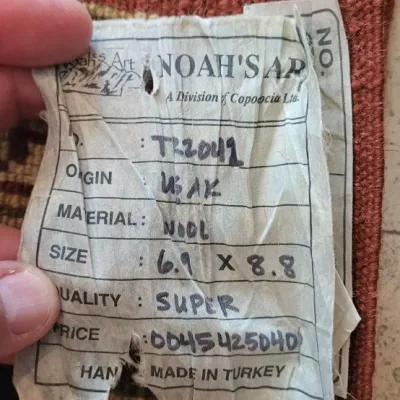 Noah's Art
NOAH'S AR
A Division of Copoocia Ltd.
NO.
: TZ2041
O GIN : USAK
MATERIAL : WOOL
SIZE : 6.9 X 8.8
UALITY : SUPER
RICE : 0045425040
HAN MADE IN TURKEY